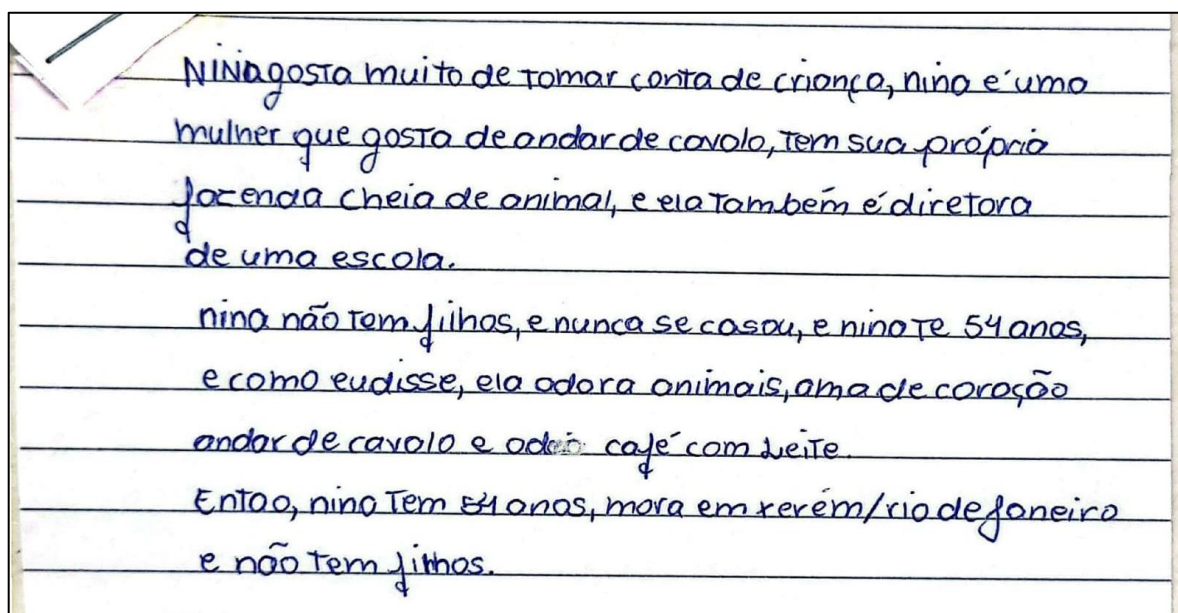 NINA gosta muito de tomar conta de criança, nina é uma
mulher que gosta de andar de cavalo, tem sua própria
fazenda cheia de animal, e ela também é diretora
de uma escola.
nina não tem filhos, e nunca se casou, e nina te 54 anos,
e como eu disse, ela adora animais, ama de coração
andar de cavalo e café com Leite.
Entao, nina tem 54 anos, mora em xerém/rio de janeiro
e não tem filhos.